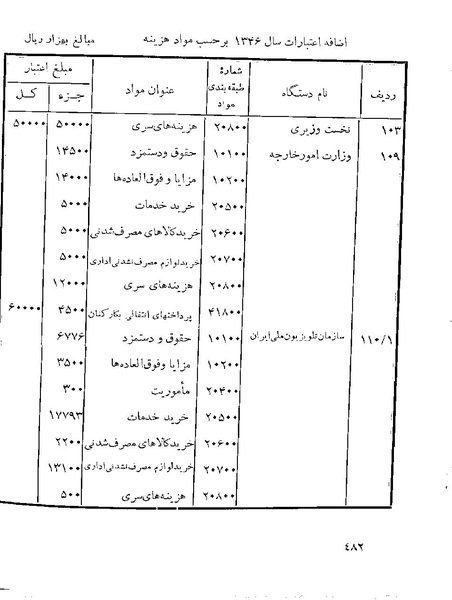 اضافه اعتبارات سال ۱۳۴۶ برحسب مواد هزینه مبالغ بهزار ریال
ردیف نام دستگاه شماره طبقه بندی مواد عنوان مواد مبلغ اعتبار
جزء کل
۱۰۳ نخست وزیری ۲۰۸۰۰ هزینه‌های سری ۵۰۰۰۰ ۵۰۰۰۰
۱۰۹ وزارت امورخارجه ۱۰۱۰۰ حقوق ودستمزد ۱۴۵۰۰
۱۰۲۰۰ مزایا و فوق‌العاده‌ها ۱۴۰۰۰
۲۰۵۰۰ خرید خدمات ۵۰۰۰
۲۰۶۰۰ خریدکالاهای مصرف‌شدنی ۵۰۰۰
۲۰۷۰۰ خریدلوازم مصرف‌نشدنی‌اداری ۵۰۰۰
۲۰۸۰۰ هزینه‌های سری ۱۲۰۰۰
۴۱۸۰۰ پرداختهای انتقالی بکارکنان ۴۵۰۰ ۶۰۰۰۰
۱۱۰/۱ سازمان‌تلویزیون‌ملی‌ایران ۱۰۱۰۰ حقوق و دستمزد ۶۷۷۶
۱۰۲۰۰ مزایا وفوق‌العاده‌ها ۳۵۰۰
۲۰۴۰۰ مأموریت ۳۰۰
۲۰۵۰۰ خرید خدمات ۱۷۷۹۳
۲۰۶۰۰ خریدکالاهای مصرف‌شدنی ۲۲۰۰
۲۰۷۰۰ خریدلوازم مصرف‌نشدنی‌اداری ۱۳۱۰۰
۲۰۸۰۰ هزینه‌های‌سری ۵۰۰
۴۸۲